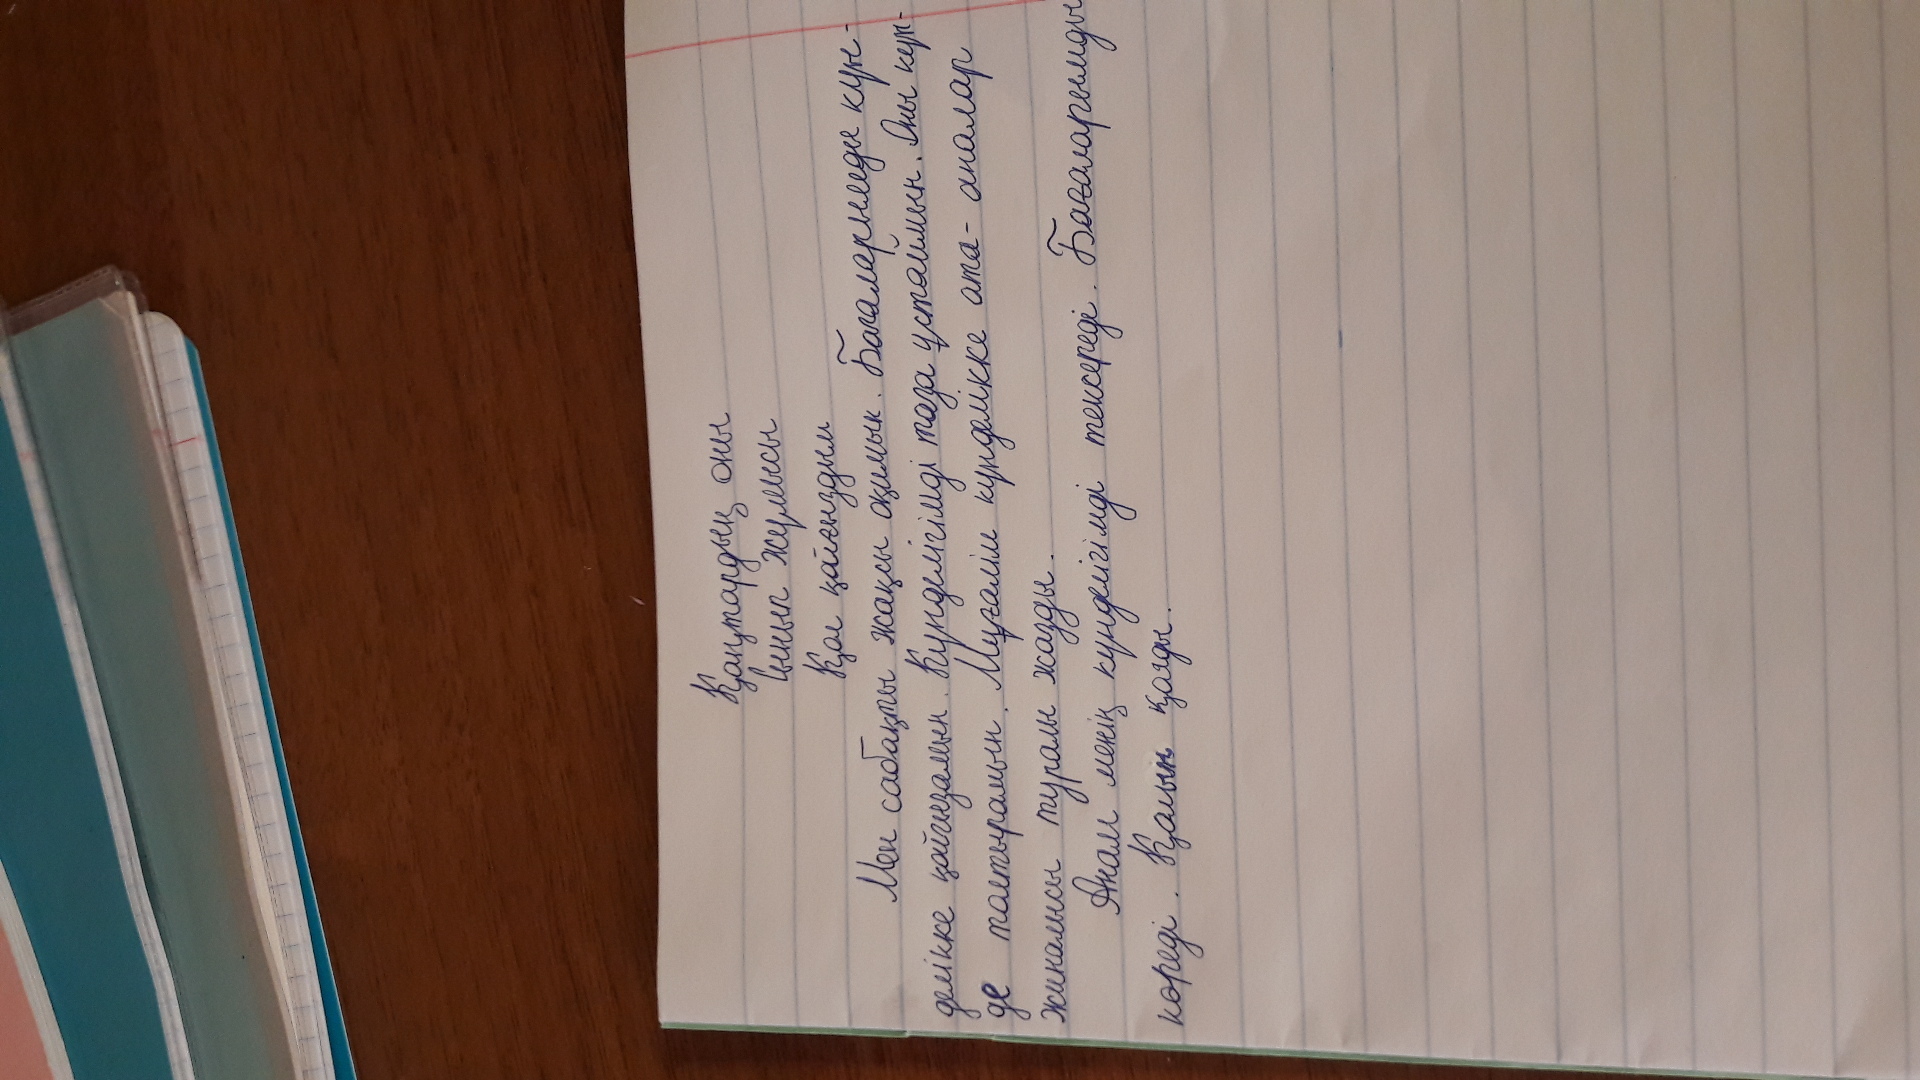 Қаңтардың оны
Сынып жұмысы
Қол қойғыздым
Мен сабақты жақсы оқимын. Бағаларымды күн-
делікке қойғызамын. Күнделігімді таза ұстаймын. Оны күн-
де толтырамын. Мұғалім күнделікке ата-аналар
жиналысы туралы жазды.
Анам менің күнделігімді тексереді. Бағаларымды
көреді. Қолын қояды.